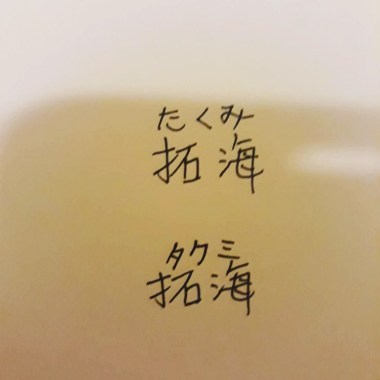 たくみ
拓海
タクミ
拓海